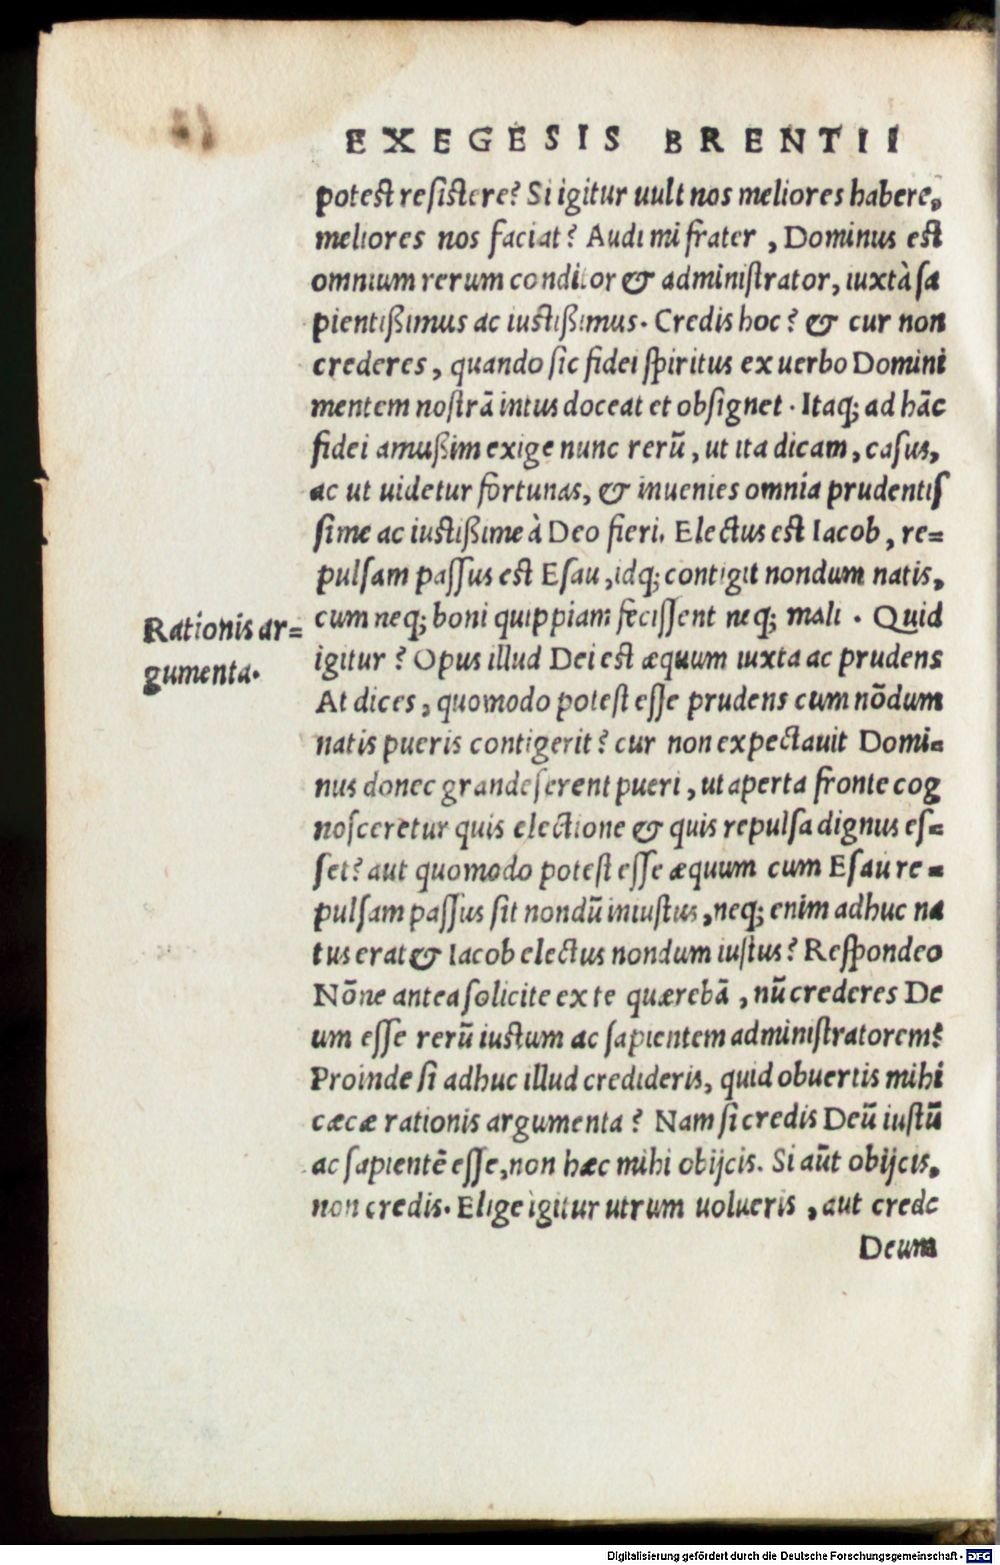 EXEGESIS BRENTII
potest resistere? Si igitur uult nos meliores habere,
meliores nos faciat? Audi mi frater, Dominus est
omnium rerum conditor & administrator, iuxtà sa
pientißimus ac iustißimus. Credis hoc? & cur non
crederes, quando sic fidei spiritus ex uerbo Domini
mentem nostrā intus doceat et obsignet. Itaq; ad hāc
fidei amußim exige nunc rerū, ut ita dicam, casus,
ac ut uidetur fortunas, & inuenies omnia prudentis
sime ac iustißime à Deo fieri. Electus est Iacob, re=
pulsam passus est Esau, idq; contigit nondum natis,
cum neq; boni quippiam fecissent neq; mali. Quid
igitur? Opus illud Dei est æquum iuxta ac prudens
At dices, quomodo potest esse prudens cum nōdum
natis pueris contigerit? cur non expectauit Domi=
nus donec grandescerent pueri, ut aperta fronte cog
nosceretur quis electione & quis repulsa dignus es=
set? aut quomodo potest esse æquum cum Esau re=
pulsam passus sit nondū iniustus, neq; enim adhuc na
tus erat & Iacob electus nondum iustus? Respondeo
Nōne antea solicite ex te quærebā, nū crederes De
um esse rerū iustum ac sapientem administratorem?
Proinde si adhuc illud credideris, quid obuertis mihi
cæcæ rationis argumenta? Nam si credis Deū iustū
ac sapientē esse, non hæc mihi obijcis. Si aūt obijcis,
non credis. Elige igitur utrum uolueris, aut crede
Deum
Rationis ar=
gumenta.
Digitalisierung gefördert durch die Deutsche Forschungsgemeinschaft - DFG